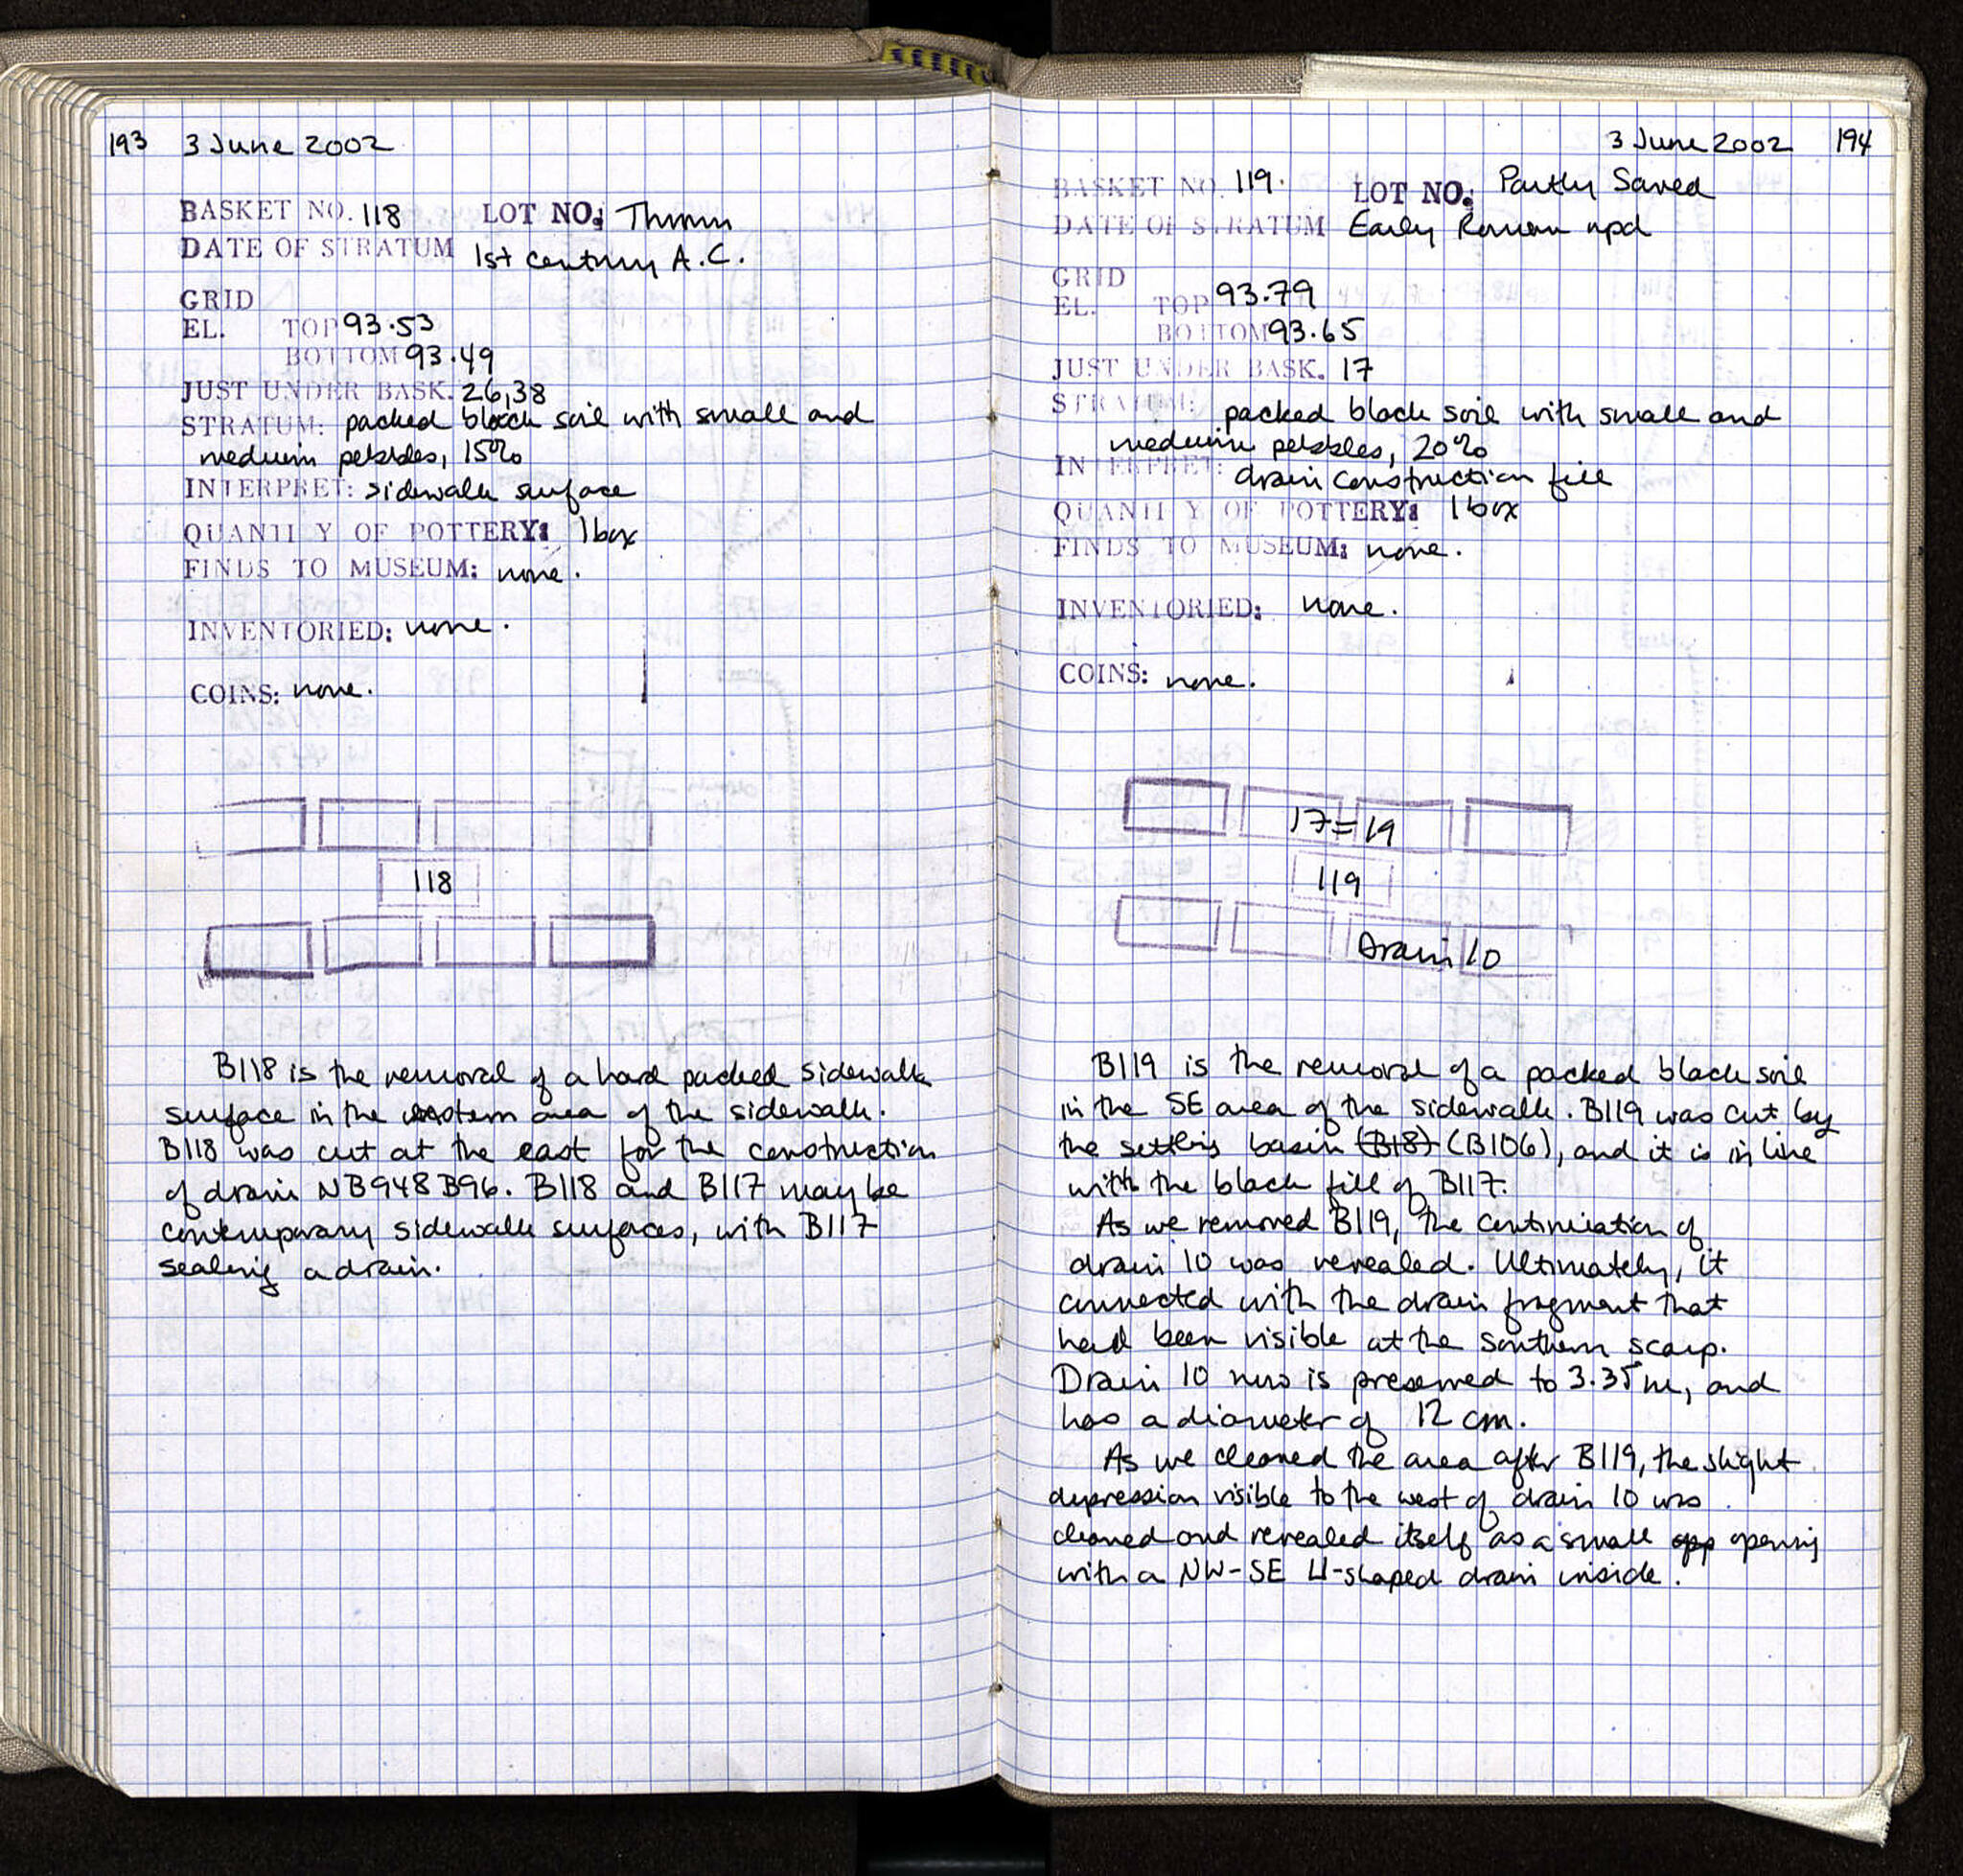 193 3 June 2002
BASKET NO. 118 LOT NO: Thrown
DATE OF STRATUM 1st century A.C.
GRID
EL. TOP 93.53
BOTTOM 93.49
JUST UNDER BASK. 26,38
STRATUM: packed black soil with small and
medium pebbles, 15%
INTERPRET: sidewalk surface
QUANTI Y OF POTTERY: 1 box
FINDS TO MUSEUM: none.
INVENTORIED: none.
COINS: none.
118
B118 is the removal of a hard packed sidewalk
surface in the area of the sidewalk.
B118 was cut at the east for the construction
of drain NB948 B96. B118 and B117 may be
contemporary sidewalk surfaces, with B117
sealing a drain.
3 June 2002 194
BASKET NO. 119. LOT NO: Partly Saved
DATE OF STRATUM Early Roman npd
GRID
EL. TOP 93.79
BOTTOM 93.65
JUST UNDER BASK. 17
STRATUM: packed black soil with small and
medium pebbles, 20%
INTERPRET: drain construction fill
QUANTI Y OF POTTERY: 1 box
FINDS TO MUSEUM: none.
INVENTORIED: none.
COINS: none.
17=19
119
Drain 10
B119 is the removal of a packed black soil
in the SE area of the sidewalk. B119 was cut by
the settling basin (B18) (B106), and it is in line
with the black fill of B117.
As we removed B119, the continuation of
drain 10 was revealed. Ultimately, it
connected with the drain fragment that
had been visible at the southern scarp.
Drain 10 now is preserved to 3.35 m, and
has a diameter of 12 cm.
As we cleaned the area after B119, the slight
depression visible to the west of drain 10 was
cleaned and revealed itself as a small opp opening
with a NW-SE U-shaped drain inside.